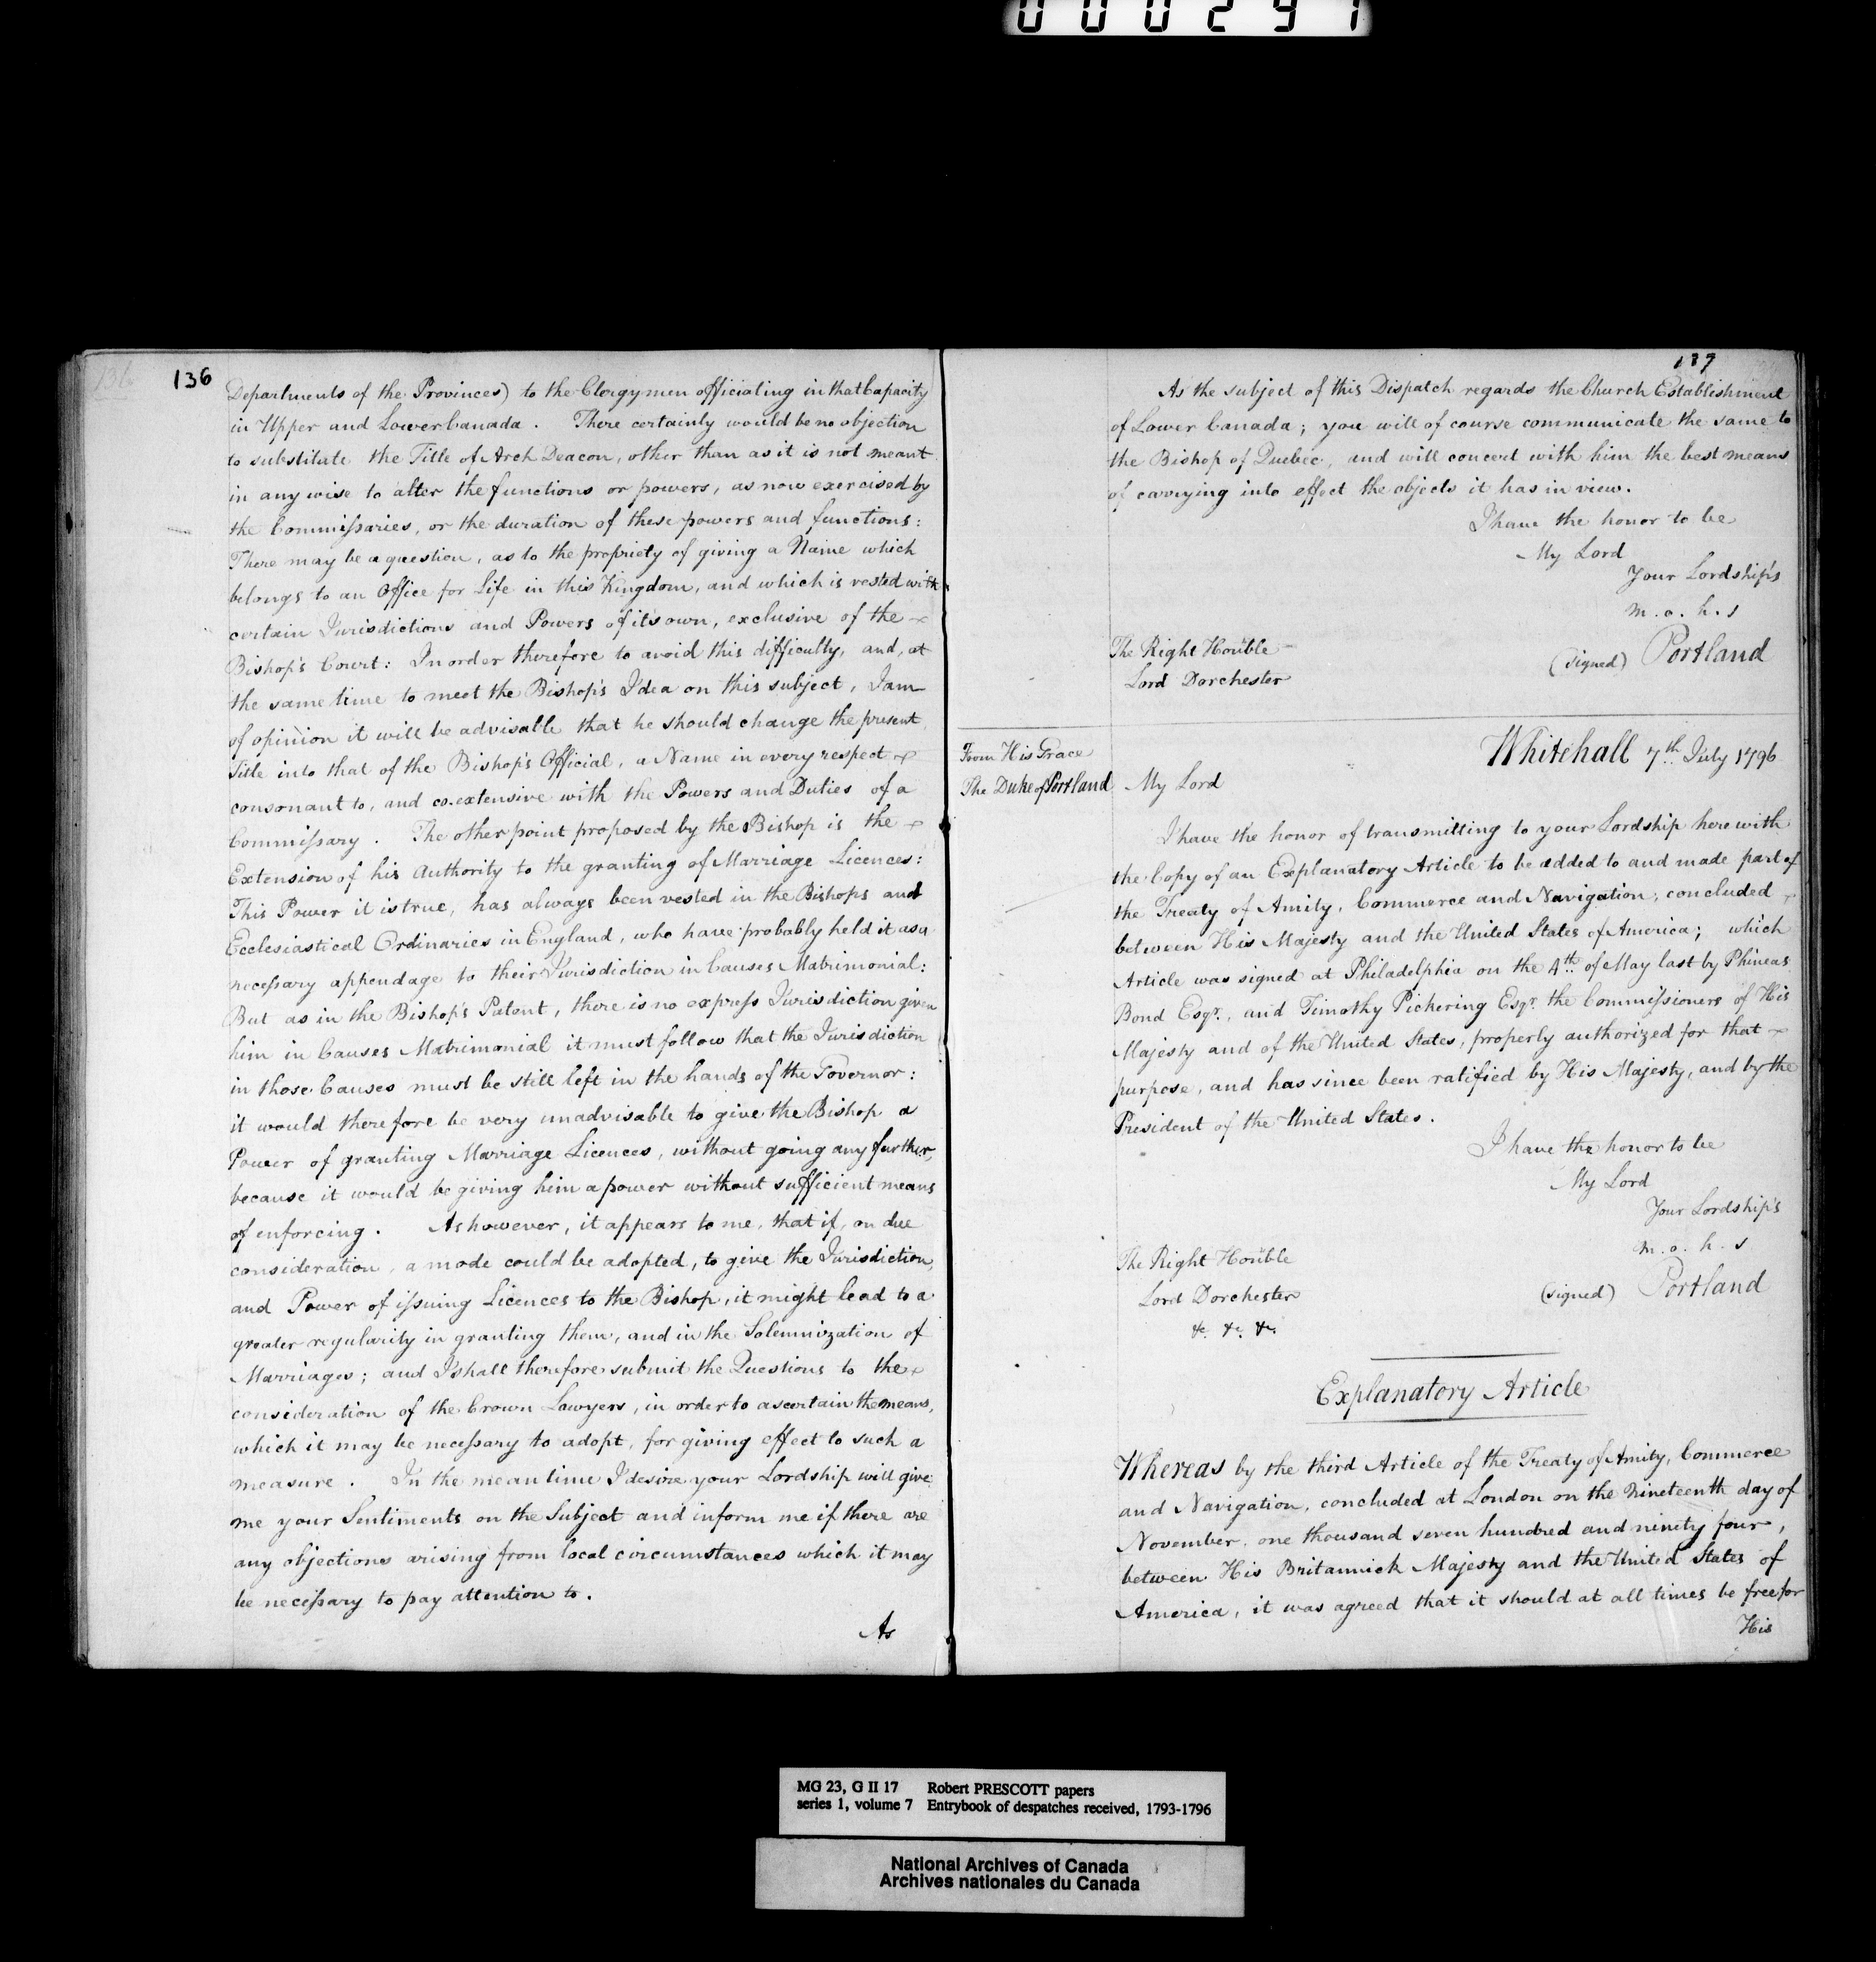 000297
136
Departments of the Provinces) to the Clergymen officiating in that Capacity
in Upper and Lower Canada . There certainly would be no objection
to substitute the Title of Arch Deacon, other than as it is not meant
in any wise to alter the functions or powers, as now exercised by
the Commissaries, or the duration of these powers and functions:
There may be a question, as to the propriety of giving a Name which
belongs to an Office for Life in this Kingdom, and which is vested with
certain Jurisdictions and Powers of it's own, exclusive of the
Bishop's Court: In order therefore to avoid this difficulty, and, at
the same time to meet the Bishop's Idea on this subject, I am
of opinion it will be advisable that he should change the present
Title into that of the Bishop's Official, a Name in every respect
consonant to, and co.extensive with the Powers and Duties of a
Commissary . The other point proposed by the Bishop is the
Extension of his authority to the granting of Marriage Licences:
This Power it is true, has always been vested in the Bishops and
Ecclesiastical Ordinaries in England, who have probably held it as a
necessary appendage to their Jurisdiction in Causes Matrimonial:
But as in the Bishop's Patent, there is no express Jurisdiction given
him in Causes Matrimonial it must follow that the Jurisdiction
in those Causes must be still left in the hands of the Governor:
it would therefore be very unadvisable to give the Bishop a
Power of granting Marriage Licences, without going any further,
because it would be giving him a power without sufficient means
of enforcing . As however, it appears to me, that if, on due
consideration, a mode could be adopted, to give the Jurisdiction,
and Power of issuing Licences to the Bishop, it might lead to a
greater regularity in granting them, and in the Solemnization of
Marriages; and I shall therefore submit the Questions to the
consideration of the Crown Lawyers, in order to ascertain the means,
which it may be necessary to adopt, for giving effect to such a
measure . In the mean time I desire your Lordship will give
me your Sentiments on the Subject and inform me if there are
any objections arising from local circumstances which it may
be necessary to pay attention to .
As
137
As the subject of this Dispatch regards the Church Establishment
of Lower Canada; you will of course communicate the same to
the Bishop of Quebec, and will concert with him the best means
of carrying into effect the objects it has in view.
I have the honor to be
My Lord
Your Lordship's
m. o. h. s
The Right Honble
(signed) Portland
Lord Dorchester
From His Grace
The Duke of Portland
Whitehall 7th July 1796
My Lord
I have the honor of transmitting to your Lordship herewith
the Copy of an Explanatory Article to be added to and made part of
the Treaty of Amity, Commerce and Navigation, concluded
between His Majesty and the United States of America; which
Article was signed at Philadelphia on the 4th of May last by Phineas
Bond Esqr., and Timothy Pickering Esqr. the Commissioners of His
Majesty and of the United States, properly authorized for that
purpose, and has since been ratified by His Majesty, and by the
President of the United States.
I have the honor to be
My Lord
Your Lordship's
m. o. h. s
The Right Honble
Lord Dorchester
(signed) Portland
&c. &c. &c.
Explanatory Article
Whereas by the third Article of the Treaty of Amity, Commerce
and Navigation, concluded at London on the nineteenth day of
November, one thousand seven hundred and ninety four,
between His Britannick Majesty and the United States of
America, it was agreed that it should at all times be free for
His
MG 23, G II 17 Robert PRESCOTT papers
series 1, volume 7 Entrybook of despatches received, 1793-1796
National Archives of Canada
Archives nationales du Canada